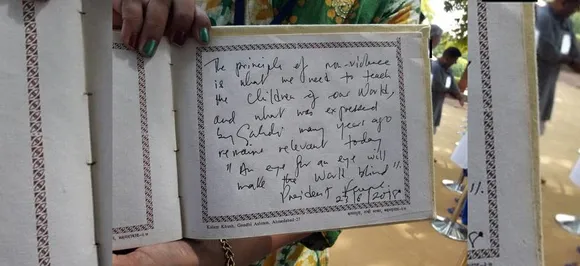 The principle of non-violence
is what we need to teach
the children of our world,
and what was expressed
by Gandhi many years ago
remains relevant today
"An eye for an eye will
make the world blind".
President
Hriday Kunj, Gandhi Ashram, Ahmedabad-27